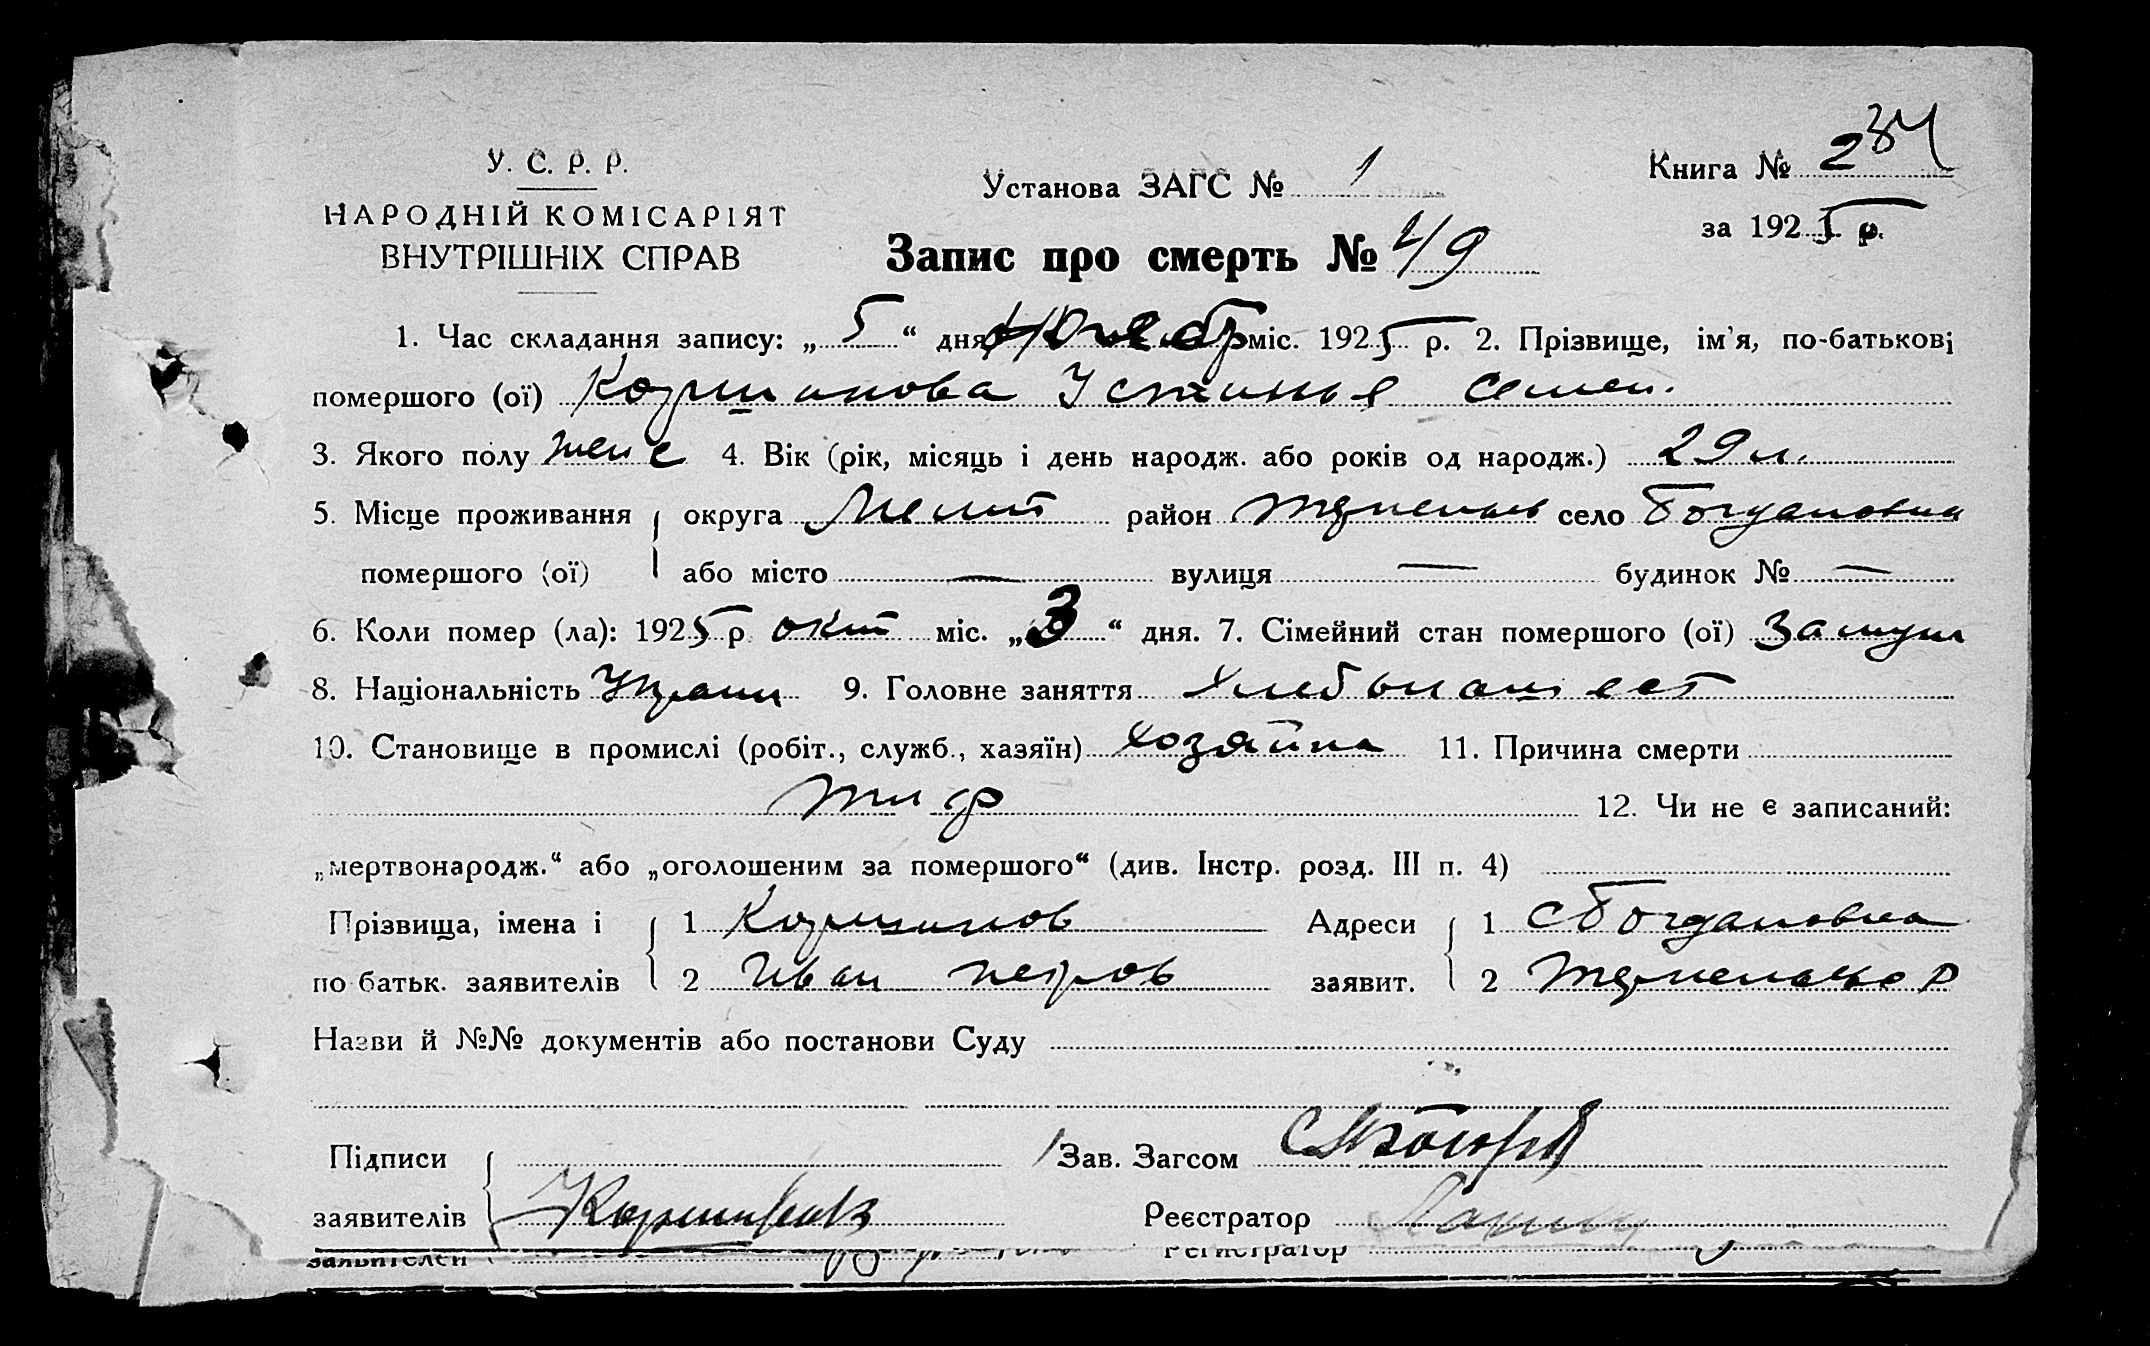 У. С. Р. Р.
НАРОДНІЙ КОМІСАРІЯТ
ВНУТРІШНІХ СПРАВ
Установа ЗАГС № 1
Книга № 2 34
за 1925 р.
Запис про смерть № 49
1. Час складання запису: „5“ дня міс. 1925 р. 2. Прізвище, ім'я, по-батькові
помершого (ої) Коршанова Устинья Семен.
3. Якого полу жен 4. Вік (рік, місяць і день народж. або років од народж.) 29 л.
5. Місце проживання округа Мелит район село Богдановка
помершого (ої) або місто — вулиця — будинок № —
6. Коли помер (ла): 1925 р. окт міс. „3“ дня. 7. Сімейний стан помершого (ої) Замужн
8. Національність Украин 9. Головне заняття Хлебопашест
10. Становище в промислі (робіт., служб., хазяїн) хозяйка 11. Причина смерти
тиф 12. Чи не є записаний:
„мертвонародж.“ або „оголошеним за помершого“ (див. Інстр. розд. III п. 4)
Прізвища, імена і 1 Коршанов Адреси 1 с Богдановка
по батьк. заявителів 2 Иван Петров заявит. 2
Назви й №№ документів або постанови Суду
Підписи Зав. Загсом
заявителів Реєстратор
заявителей Регистратор